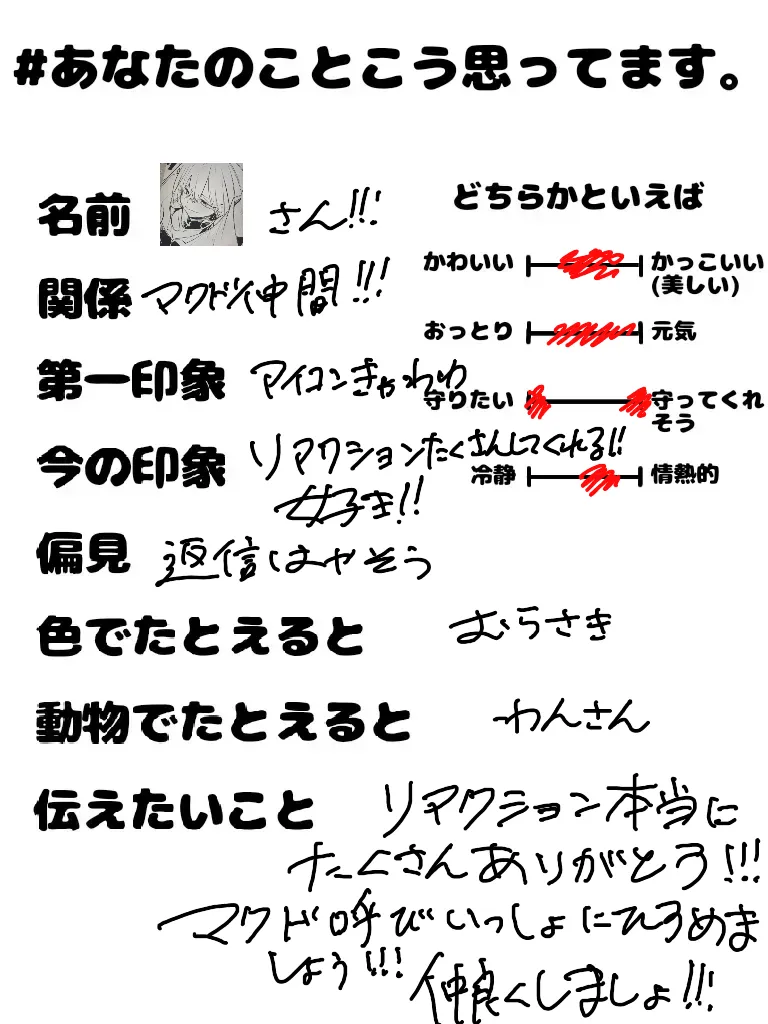 #あなたのことこう思ってます。
名前 さん!!!
関係 マクド仲間!!!
第一印象 アイコンきゃわわ
今の印象 リアクションたくさんしてくれる!!
好き!!
偏見 返信はやそう
色でたとえると むらさき
動物でたとえると わんさん
伝えたいこと リアクション本当に
たくさんありがとう!!!
マクド呼びいっしょにひろめま
しょう!!! 仲良くしましょ!!!
どちらかといえば
かわいい かっこいい
(美しい)
おっとり 元気
守りたい 守ってくれ
そう
冷静 情熱的